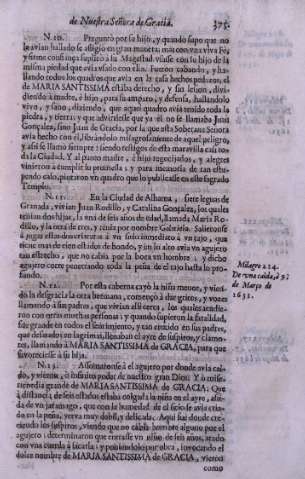 de Nuestra Señora de Gracia. 375
N. 10. Preguntò por su hijo, y quando supo que no
le avian hallado se afligiò en gran manera; mas con viva Fè,
y firme confiança suplicò à la Magestad viesse con su hijo de la
misma piedad que avia usado con ella. Fueron cabando, y ha-
llando todos los quadros que avia en la casa hechos pedazos, el
de MARIA SANTISSIMA estaba derecho, y sin lesion, divi-
diendo
vivo, y sano, diziendo, que aquel quadro avia tenido toda la
piedra, y tierra: y que advirtiesse que ya èl no se llamaba Juan
Gonçalez, sino Juan de Gracia, por lo que esta Soberana Señora
avia hecho con el, librandolo milagrosamente de aquel peligro,
y assi se llamò siempre: siendo testigos de esta maravilla casi to-
da la Ciudad. Y al punto madre, è hijo regozijados, y alegres
vinieron à cumplir la promessa: y para memoria de tan estu-
pendo caso, pusieron un quadro que lo publicasse en este sagrado
Templo.
N. 11. En la Ciudad de Alhama, siete leguas de
Granada, vivian Juan Rodillo, y Catalina Gonçalez, los quales
tenian dos hijas, la una de seis años de edad, llamada Maria Ro-
dillo, y la otra de tres, y tenia por nombre Gabriela. Salieronse
à jugar
tiene mas de cien estados de hondo, y en lo alto avia un agujero
tan estrecho, que no cabia por la boca un hombre: y dicho
agujero corre penetrando toda la peña de el tajo hasta lo pro-
fundo.
Milagro 214.
De una caida, à 9.
de Março de
1651.
N. 12. Por esta caberna cayò la niña menor, y vien-
do la desgracia la otra hermana, començò à dar gritos, y vozes
llamando à sus padres, que vivian alli cerca, los quales acudie-
ron con otras muchas personas: y quando supieron la fatalidad,
fue grande en todos el sentimiento, y tan crecido en sus padres,
que desatados en lagrimas, llenaban el ayre de suspiros, y clamo-
res, llamando à MARIA SANTISSIMA de GRACIA, para que
favoreciesse à su hija.
N. 13. Assomaronse al agujero por donde avia cai-
do, y vieron, ò infinito poder de nuestro gran Dios! Y ò mise-
ricordia grande de MARIA SANTISSIMA de GRACIA! Que
à distancia de seis estados estaba colgada la niña en el ayre, asi-
da de un jaramago, que con la humedad de el sitio se avia cria-
do en la peña, yerva muy debil, y delicada. Aqui fue donde cre-
ciendo los suspiros, viendo que no cabia hombre alguno por el
agujero: determinaron que entrasse un niño de seis años, atado
con una cuerda à la cintura; y poniendolo por obra, invocando el
dulce nombre de MARIA SANTISSIMA de GRACIA, vieron
como